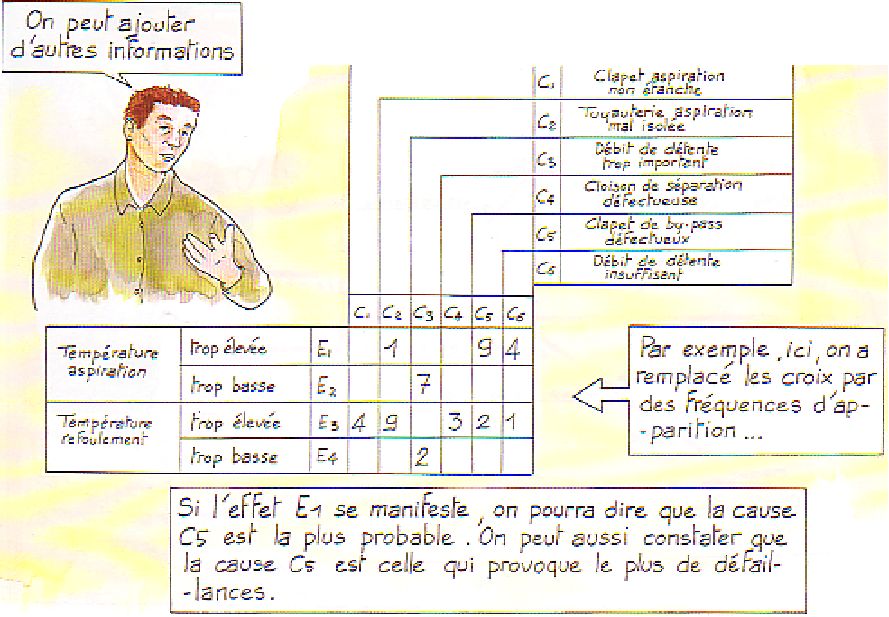 On peut ajouter
d'autres informations
C1 Clapet aspiration
non étanche
C2 Tuyauterie aspiration
mal isolée
C3 Débit de détente
trop important
C4 Cloison de séparation
défectueuse
C5 Clapet de by-pass
défectueux
C6 Débit de détente
insuffisant
C1 C2 C3 C4 C5 C6
Température
aspiration
trop élevée E1 1 9 4
trop basse E2 7
Température
refoulement
trop élevée E3 4 9 3 2 1
trop basse E4 2
Par exemple, ici, on a
remplacé les croix par
des fréquences d'ap-
-parition ...
Si l'effet E1 se manifeste, on pourra dire que la cause
C5 est la plus probable. On peut aussi constater que
la cause C5 est celle qui provoque le plus de défail-
-lances.